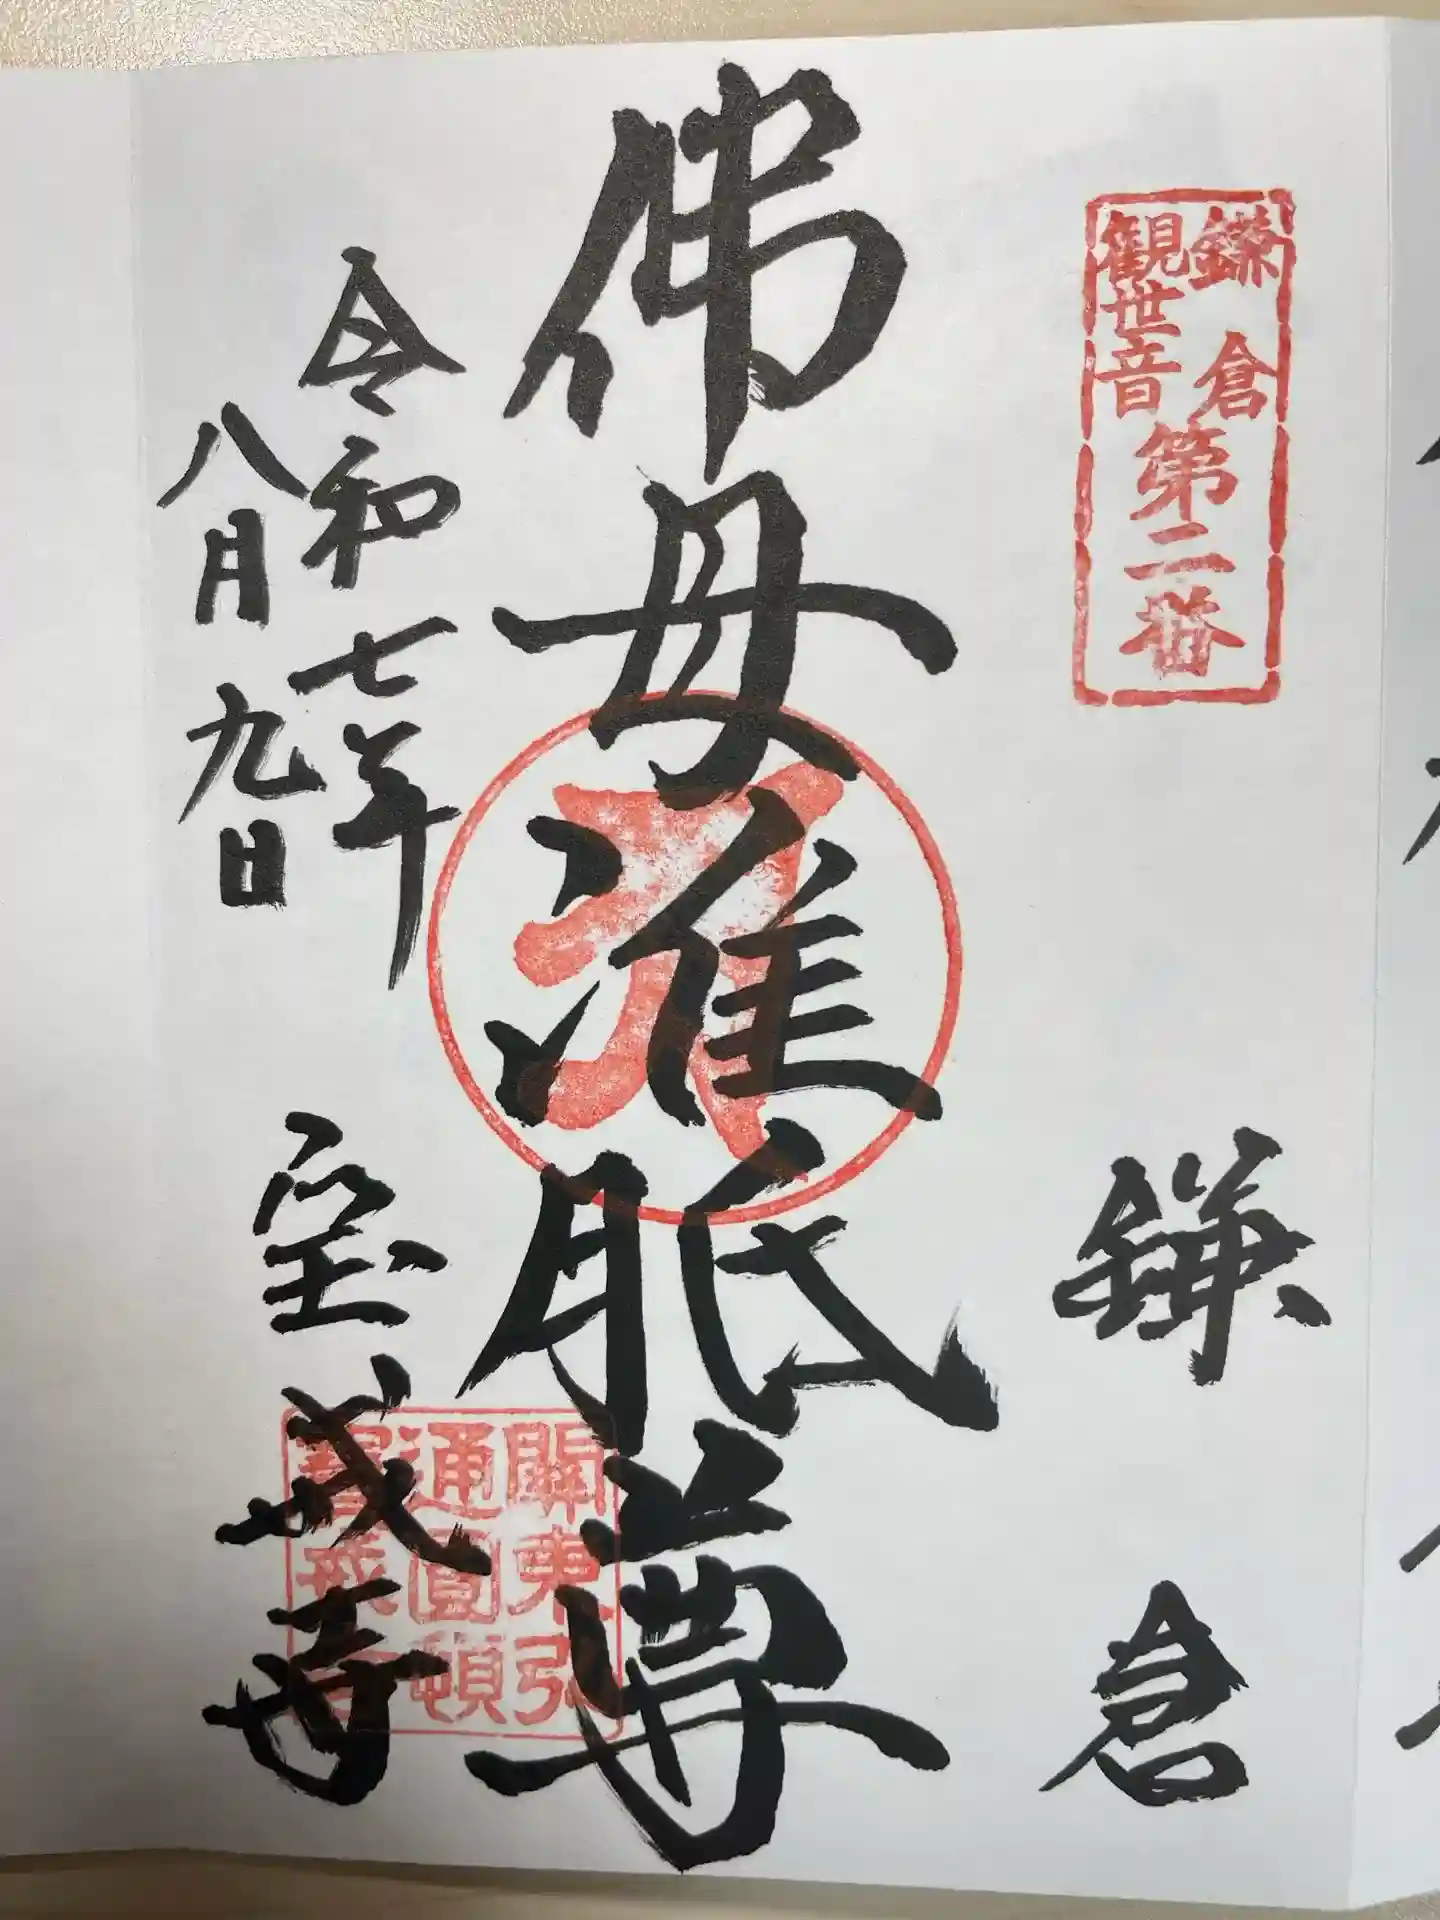 鎌倉
観世音
第二番
鎌倉
佛母准胝尊
令和七年
八月九日
宝戒寺
關東弘
通圓頓
寳戒寺